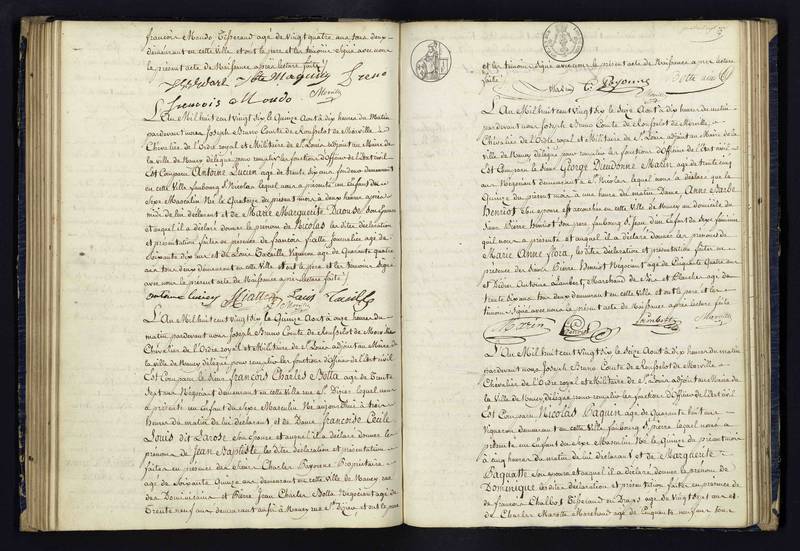 françois Mondo Tisserand agé de Vingt quatre ans tous deux
demeurant en cette Ville et ont le pere et les témoins Signé avec nous
le présent acte de Naissance après lecture faite
françois Mondo
Morville
L'An Mil huit cent Vingt Six le Quinze Aout à dix heures du Matin
pardevant nous Joseph Bruno Comte de Rousselot de Morville
Chevalier de l'Ordre royal et Militaire de St Louis adjoint au Maire de
la Ville de Nancy délégué pour remplir les fonctions d'Officier de l'Etat civil
Est Comparu Antoine Lucien agé de trente dix ans demeurant
en cette Ville faubourg St Nicolas lequel nous a présenté un Enfant du
Sexe Masculin Né le Quatorze du présent mois à deux heures après
midi de lui déclarant et de Marie Marguerite Daouse Son Epouse
et auquel il a déclaré donner le prénom de Nicolas les dites déclaration
et présentation faites en présence de françois fiatte Journalier agé de
Soixante dix ans et de Louis Taville Vigneron agé de Quarante quatre
ans tous deux demeurant en cette Ville et ont le pere et les témoins Signé
avec nous le présent acte de Naissance après lecture faite
Louis Taville
Morville
L'An Mil huit cent Vingt Six le Quinze Aout à onze heures du
matin pardevant nous Joseph Bruno Comte de Rousselot de Morville
Chevalier de l'Ordre royal et Militaire de St Louis adjoint au Maire de
la Ville de Nancy délégué pour remplir les fonctions d'Officier de l'Etat civil
Est Comparu le Sieur françois Charles Botta agé de Trente
Sept ans Négociant demeurant en cette Ville rue St Dizier lequel nous
a présenté un Enfant du Sexe Masculin Né aujourd'hui à trois
heures du matin de lui déclarant et de Dame françoise Cécile
Louis dit Larose Son Epouse et auquel il a déclaré donner les
prénoms de Jean Baptiste les dites déclaration et présentation
faites en présence des Sieurs Charles Bayonne Propriétaire
agé de Soixante Quinze ans demeurant en cette Ville de Nancy rue
des Dominicains et Pierre Jean Charles Botta Négociant agé de
Trente neuf ans demeurant aussi à Nancy rue St Dizier, et ont le pere
et les témoins Signé avec nous le présent acte de Naissance après lecture
faite
Bayonne
Botta
Morville
L'An Mil huit cent Vingt Six le Seize Aout à dix heures du matin
pardevant nous Joseph Bruno Comte de Rousselot de Morville
Chevalier de l'Ordre royal et Militaire de St Louis adjoint au Maire de la
Ville de Nancy délégué pour remplir les fonctions d'Officier de l'Etat civil
Est Comparu le Sieur George Dieudonné Marin agé de trente cinq
ans Négociant demeurant à St Nicolas lequel nous a déclaré que le
Quinze du présent mois à une heure du matin Dame Anne Barbe
Henriot Son épouse est accouchée en cette Ville de Nancy au domicile du
Sieur Pierre Henriot Son pere faubourg St Jean d'un Enfant du Sexe féminin
qu'il nous a présenté et auquel il a déclaré donner les prénoms de
Marie Anne flora, les dites déclaration et présentation faites en
présence des Sieurs Pierre Henriot Négociant agé de Cinquante Quatre ans
et Didier Antoine Lambert, Marchand de fer et Plancher agé de
trente dix ans tous deux demeurant en cette Ville et ont le pere et les
témoins Signé avec nous le présent acte de Naissance après lecture faite
Marin
Henriot
Lambert
Morville
L'An Mil huit cent Vingt Six le Seize Aout à dix heures du matin
pardevant nous Joseph Bruno Comte de Rousselot de Morville
Chevalier de l'Ordre royal et Militaire de St Louis adjoint au Maire de
la Ville de Nancy délégué pour remplir les fonctions d'Officier de l'Etat civil
Est Comparu Nicolas Paquin agé de Quarante huit ans
Vigneron demeurant en cette Ville faubourg St Pierre lequel nous a
présenté un Enfant du Sexe Masculin Né le Quinze du présent mois
à cinq heures du matin de lui déclarant et de Marguerite
Paquatte Son épouse et auquel il a déclaré donner le prénom de
Dominique les dites déclaration et présentation faites en présence de
françois Chalbos Tisserand en Draps agé de Vingt Sept ans et
de Charles Marotte Marchand agé de Cinquante neuf ans tous